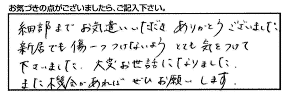 お気づきの点がございましたら、ご記入下さい。
細部までお気遣いいただき ありがとうございました。
新居でも傷一つつけないよう とても気をつけて
下さいました。大変お世話になりました。
また機会があれば ぜひお願いします。